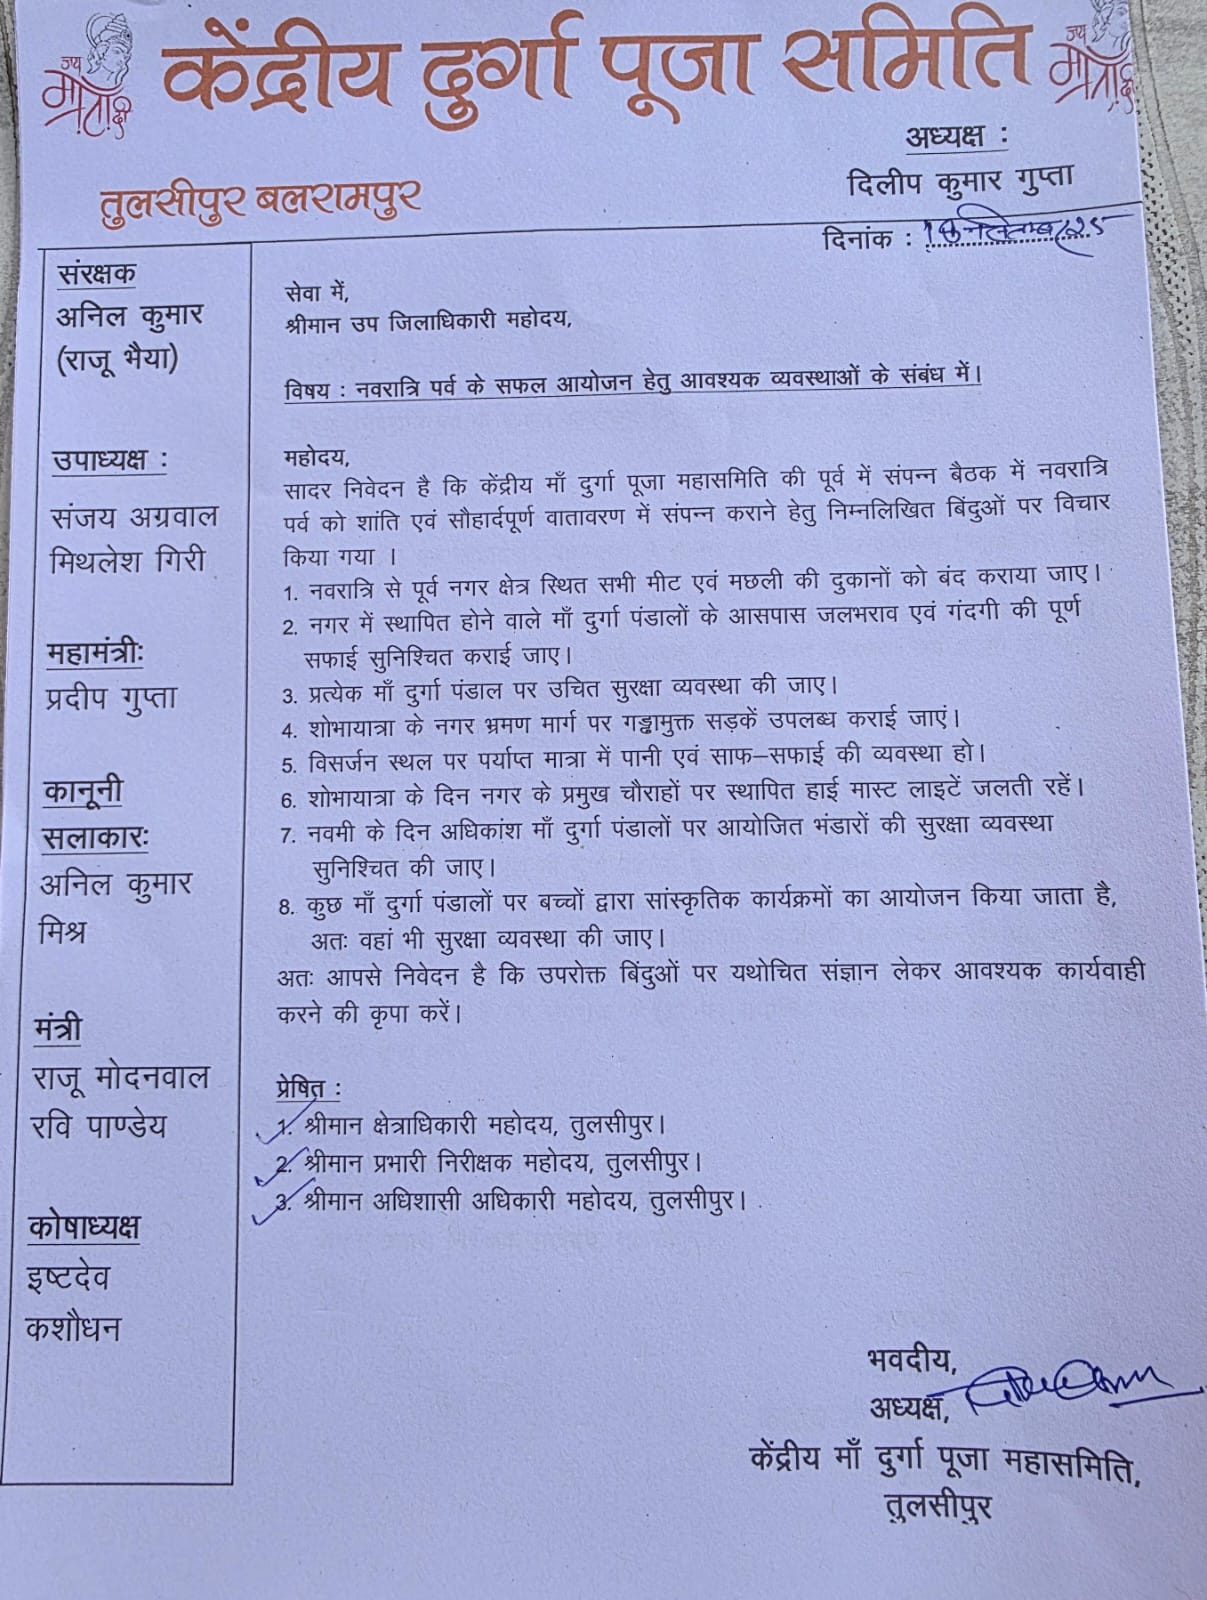 जय
केंद्रीय दुर्गा पूजा समिति
जय
अध्यक्ष :
दिलीप कुमार गुप्ता
तुलसीपुर बलरामपुर
दिनांक :
संरक्षक
अनिल कुमार
(राजू भैया)
उपाध्यक्ष :
संजय अग्रवाल
मिथलेश गिरी
महामंत्रीः
प्रदीप गुप्ता
कानूनी
सलाकारः
अनिल कुमार
मिश्र
मंत्री
राजू मोदनवाल
रवि पाण्डेय
कोषाध्यक्ष
इष्टदेव
कशौधन
सेवा में,
श्रीमान उप जिलाधिकारी महोदय,
विषय : नवरात्रि पर्व के सफल आयोजन हेतु आवश्यक व्यवस्थाओं के संबंध में।
महोदय,
सादर निवेदन है कि केंद्रीय माँ दुर्गा पूजा महासमिति की पूर्व में संपन्न बैठक में नवरात्रि
पर्व को शांति एवं सौहार्दपूर्ण वातावरण में संपन्न कराने हेतु निम्नलिखित बिंदुओं पर विचार
किया गया ।
1. नवरात्रि से पूर्व नगर क्षेत्र स्थित सभी मीट एवं मछली की दुकानों को बंद कराया जाए।
2. नगर में स्थापित होने वाले माँ दुर्गा पंडालों के आसपास जलभराव एवं गंदगी की पूर्ण
सफाई सुनिश्चित कराई जाए।
3. प्रत्येक माँ दुर्गा पंडाल पर उचित सुरक्षा व्यवस्था की जाए।
4. शोभायात्रा के नगर भ्रमण मार्ग पर गड्ढामुक्त सड़कें उपलब्ध कराई जाएं।
5. विसर्जन स्थल पर पर्याप्त मात्रा में पानी एवं साफ–सफाई की व्यवस्था हो।
6. शोभायात्रा के दिन नगर के प्रमुख चौराहों पर स्थापित हाई मास्ट लाइटें जलती रहें।
7. नवमी के दिन अधिकांश माँ दुर्गा पंडालों पर आयोजित भंडारों की सुरक्षा व्यवस्था
सुनिश्चित की जाए।
8. कुछ माँ दुर्गा पंडालों पर बच्चों द्वारा सांस्कृतिक कार्यक्रमों का आयोजन किया जाता है,
अतः वहां भी सुरक्षा व्यवस्था की जाए।
अतः आपसे निवेदन है कि उपरोक्त बिंदुओं पर यथोचित संज्ञान लेकर आवश्यक कार्यवाही
करने की कृपा करें।
प्रेषित :
1. श्रीमान क्षेत्राधिकारी महोदय, तुलसीपुर।
2. श्रीमान प्रभारी निरीक्षक महोदय, तुलसीपुर।
3. श्रीमान अधिशासी अधिकारी महोदय, तुलसीपुर।
भवदीय,
अध्यक्ष,
केंद्रीय माँ दुर्गा पूजा महासमिति,
तुलसीपुर